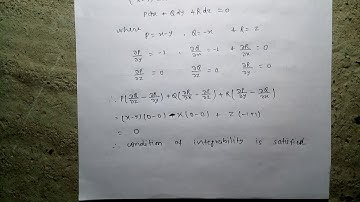 Pdx + Qdy + Rdz = 0
where P = x-y , Q = -x & R = z
∂P/∂y = -1 , ∂Q/∂x = -1 & ∂R/∂x = 0
∂P/∂z = 0 ∂Q/∂z = 0 ∂R/∂y = 0
∴ P(∂Q/∂z - ∂R/∂y) + Q(∂R/∂x - ∂P/∂z) + R(∂P/∂y - ∂Q/∂x)
= (x-y)(0-0) - x(0-0) + z(-1+1)
= 0
∴ condition of integrability is satisfied